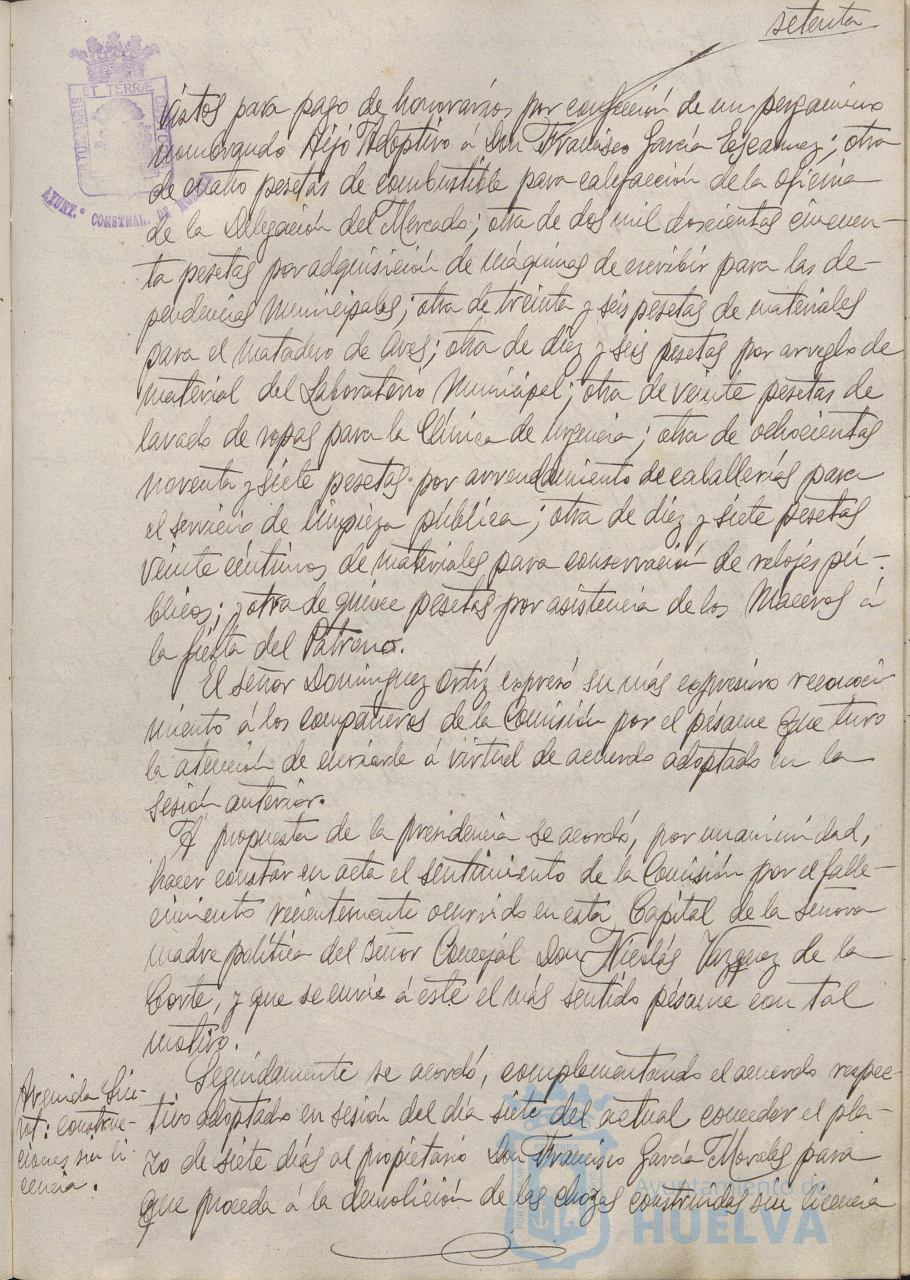 setenta
vistos para pago de honorarios por confección de un pergamino
nombrando Hijo Adoptivo á Don Francisco García ; otra
de cuatro pesetas de combustible para calefacción de la oficina
de la Delegación del Mercado; otra de dos mil doscientas cincuen-
ta pesetas por adquisición de máquinas de escribir para las de-
pendencias Municipales; otra de treinta y seis pesetas de materiales
para el Matadero de Aves; otra de diez y seis pesetas por arreglo de
material del Laboratorio Municipal; otra de veinte pesetas de
lavado de ropas para la Clínica de urgencia; otra de ochocientas
noventa y siete pesetas por arrendamiento de caballerías para
el servicio de limpieza pública; otra de diez y siete pesetas
veinte céntimos de materiales para conservación de relojes pú-
blicos; y otra de quince pesetas por asistencia de los Maceros á
la fiesta del Patrono.
El señor Domínguez Ortíz expresó su más expresivo reconoci
miento á los compañeros de la Comisión por el pésame que tuvo
la atención de enviarle á virtud de acuerdo adoptado en la
sesión anterior.
A propuesta de la presidencia se acordó, por unanimidad,
hacer constar en acta el sentimiento de la Comisión por el falle-
cimiento recientemente ocurrido en esta Capital de la señora
madre política del señor Concejal Don Nicolás Vazquez de la
Corte, y que se envíe á este el más sentido pésame con tal
motivo.
Seguidamente se acordó, complementando el acuerdo respec-
tivo adoptado en sesión del día siete del actual conceder el pla-
zo de siete días al propietario Don Francisco García Morales para
que proceda á la demolición de las chozas construidas sin licencia
Avenida Siu-
rot: construc-
ciones sin li-
cencia.
AYUNT.º CONSTNAL. DE HUELVA
Ayuntamiento de
HUELVA